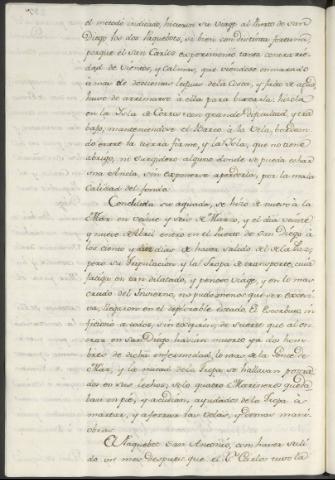 el metodo indicado, hicieron su viage al Puerto de San
Diego los dos Paquebotes, si bien con distinta fortuna,
porque el San Carlos experimentó tanta contrarie-
dad de vientos, y calmas, que viendose enmarado
á mas de doscientas leguas de la Costa, y falto de agua
huvo de arrimarse á ella para buscarla: hizola
en la Isla de Cerros con grande dificultad, y tra
bajo, manteniendose el Barco á la Vela, bordean
do entre la tierra firme, y la Isla, que no tiene
abrigo, ni surgidero alguno donde se pueda echar
una Ancla, sin exponerse á perderla, por la mala
calidad del fondo.
Concluida su aguada, se hizo de nuevo á la
Mar en veinte y seis de Marzo, y el dia veinte
y nueve de Abril entró en el Puerto de San Diego á
los ciento y diez dias de haver salido de el de la Paz,
pero su Tripulacion y la Tropa de transporte, cuia
fatiga en tan dilatado, y penoso viage, y en lo mas
crudo del Invierno, no pudo menos que ser excesi-
va, llegaron en el deplorable estado. El Escorbuto in
ficionó á todos, sin excepcion, de suerte que al en
trar en San Diego havian muerto ya dos hom
bres de dicha enfermedad, lo mas de la Gente de
Mar, y la mitad de la Tropa se hallavan postra
dos en sus lechos, solo quatro Marineros queda
ban en pié, y acudian, ayudados de la Tropa á
marear, y aferrar las velas, y demas mani
obras.
El Paquebot San Antonio, con haver sali
do un mes despues que el Sn. Carlos tuvo la